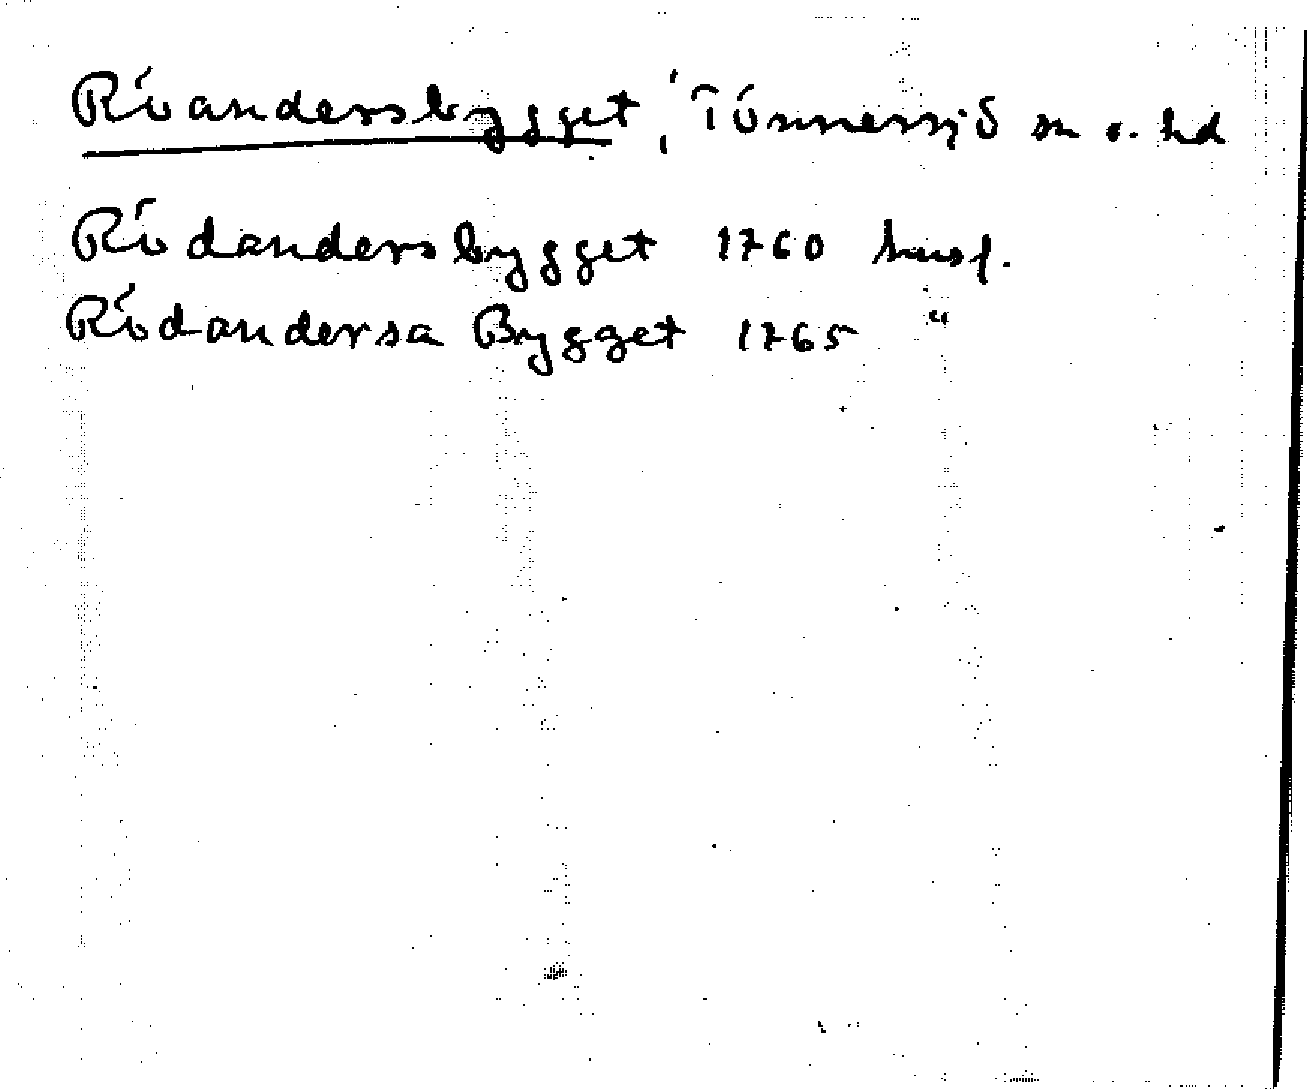 Röandersbygget, Tönnersjö sn o. hd
Rödandersbygget 1760 husf.
Rödandersa Bygget 1765 "